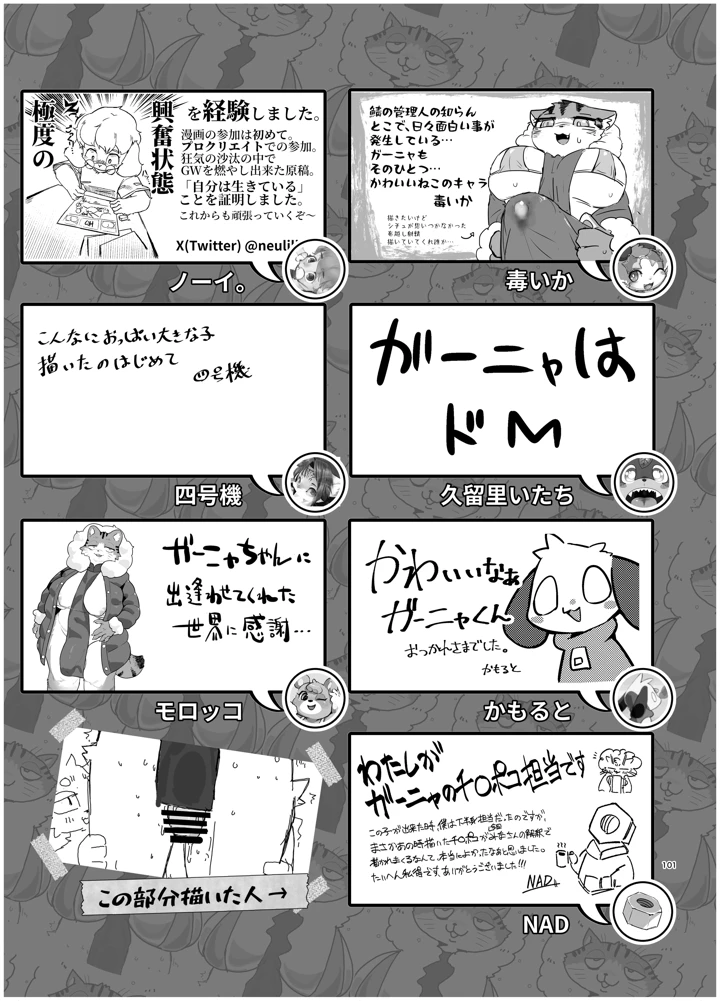 極度の
興奮状態
を経験しました。
漫画の参加は初めて。
プロクリエイトでの参加。
狂気の沙汰の中で
GWを燃やし出来た原稿。
「自分は生きている」
ことを証明しました。
これからも頑張っていくぞ〜
X(Twitter) @neulil
ノーイ。
鯖の管理人の知らん
とこで、日々面白い事が
発生している…
ガーニャも
そのひとつ…
かわいいねこのキャラ
毒いか
描きたいけど
シチュが思いつかなかった
描いていてくれ誰か…
毒いか
こんなにおっぱい大きな子
描いたのはじめて
四号機
四号機
ガーニャは
ドM
久留里いたち
ガーニャちゃんに
出逢わせてくれた
世界に感謝…
モロッコ
かわいいなぁ
ガーニャくん
おっかんさまでした。
かもると
かもると
この部分描いた人→
わたしが
ガーニャのチ○ポコ担当です
この子が出来た時、僕は下半身担当だったのですが、
まさかあの時描いたチ○ポコがみなさんの解釈で
描かれまくるなんて、本当によかったなあと思いました。
たいへん私得です、ありがとうございました!!!
NAD
NAD
101